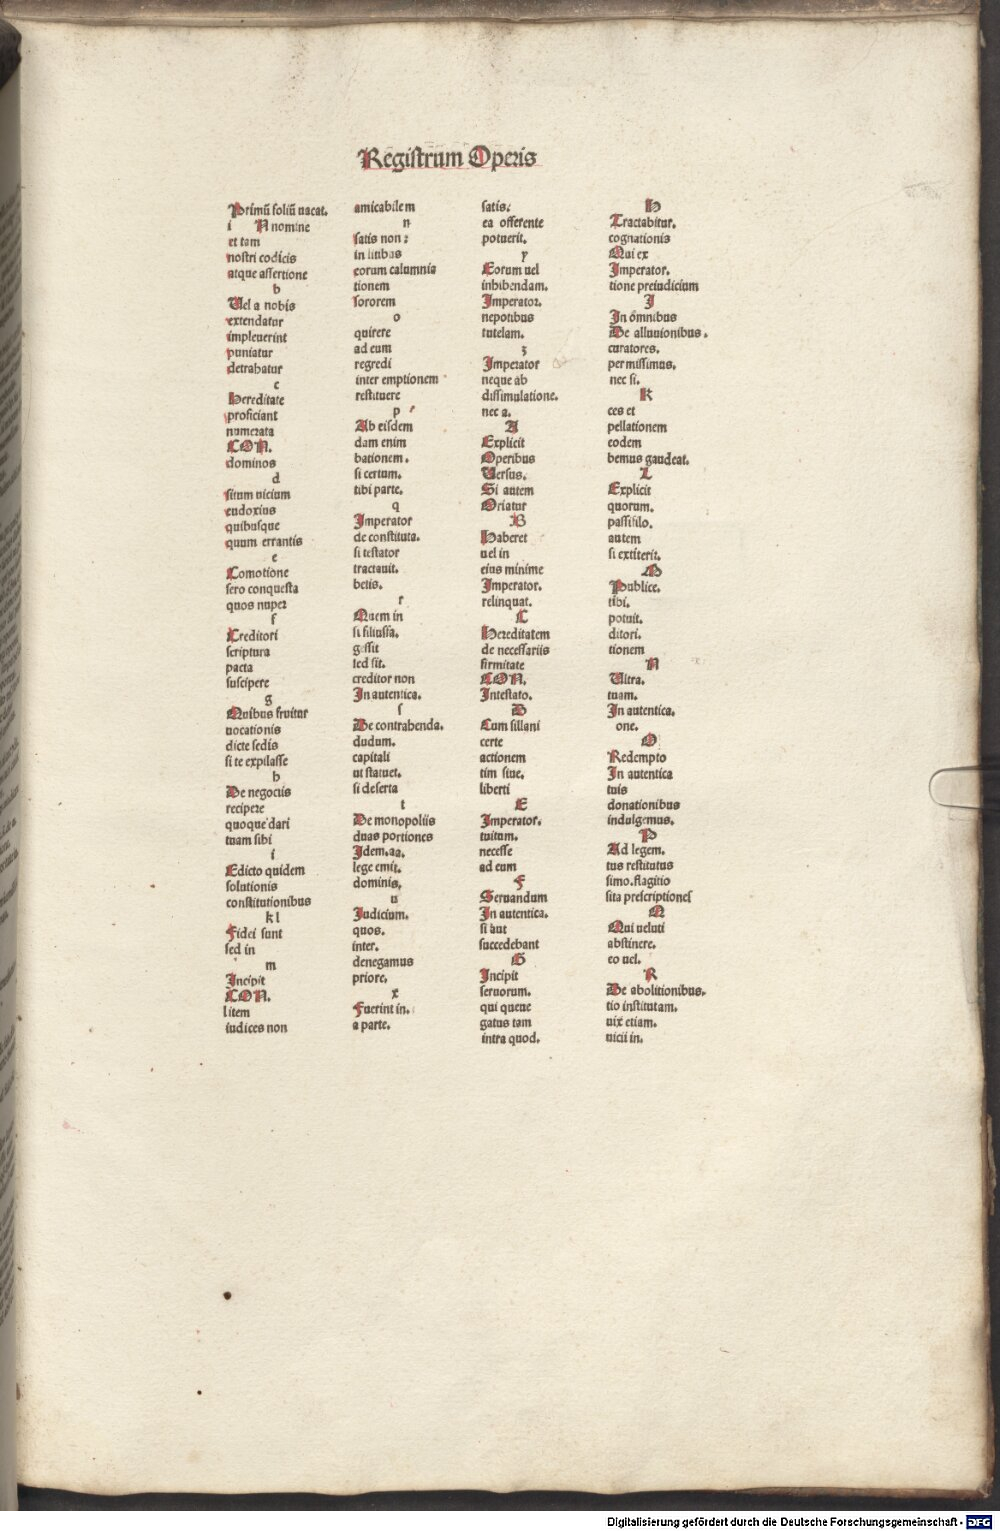 Registrum Operis
Primū foliū uacat.
i N nomine
et tam
nostri codicis
atque assertione
b
Uel a nobis
extendatur
impleuerint
puniatur
detrahatur
c
Hereditate
proficiant
numerata
CON.
dominos
d
situm uicium
eudoxius
quibusque
quum errantis
e
Comotione
sero conquesta
quos nuper
f
Creditori
scriptura
pacta
suscipere
g
Quibus fruitur
uocationis
dicte sedis
si te expilasse
h
De negociis
recipere
quoque dari
tuam sibi
i
Edicto quidem
solutionis
constitutionibus
k l
Fidei sunt
sed in
m
Incipit
CON.
litem
iudices non
amicabilem
n
satis non:
in litibus
eorum calumnia
tionem
sororem
o
quirere
ad eum
regredi
inter emptionem
restituere
p
Ab eisdem
dam enim
bationem.
si certum.
tibi parte.
q
Imperator
de constituta.
si testator
tractauit.
betis.
r
Quem in
si filiussa.
gessit
sed sit.
creditor non
In autentica.
s
De contrahenda.
dudum.
capitali
ut statuet.
si deserta
t
De monopoliis
duas portiones
Idem.aa.
lege emit.
dominis.
u
Iudicium.
quos.
inter.
denegamus
priore.
x
Fuerint in.
a parte.
satis:
ea offerente
potuerit.
y
Eorum uel
inhibendam.
Imperator.
nepotibus
tutelam.
z
Imperator
neque ab
dissimulatione.
nec a.
A
Explicit
Operibus
Uersus.
Si autem
Oriatur
B
Haberet
uel in
eius minime
Imperator.
relinquat.
C
Hereditatem
de necessariis
firmitate
CON.
Intestato.
D
Cum sillani
certe
actionem
tim siue.
liberti
E
Imperator.
tuitum.
necesse
ad eum
F
Seruandum
In autentica.
si aut
succedebant
G
Incipit
seruorum.
qui queue
gatus tam
intra quod.
H
Tractabitur.
cognationis
Qui ex
Imperator.
tione preiudicium
I
In omnibus
De alluuionibus.
curatores.
permissimus.
nec si.
K
ces et
pellationem
eodem
bemus gaudeat.
L
Explicit
quorum.
passisilo.
autem
si extiterit.
M
Publice.
tibi.
potuit.
ditori.
tionem
N
Ultra.
tuam.
In autentica.
one.
O
Redempto
In autentica
tuis
donationibus
indulgemus.
P
Ad legem.
tus restitutus
simo.flagitio
sita prescriptiones
Q
Qui ueluti
abstinere.
eo uel.
R
De abolitionibus.
tio institutam.
uix etiam.
uicii in.
Digitalisierung gefördert durch die Deutsche Forschungsgemeinschaft - DFG